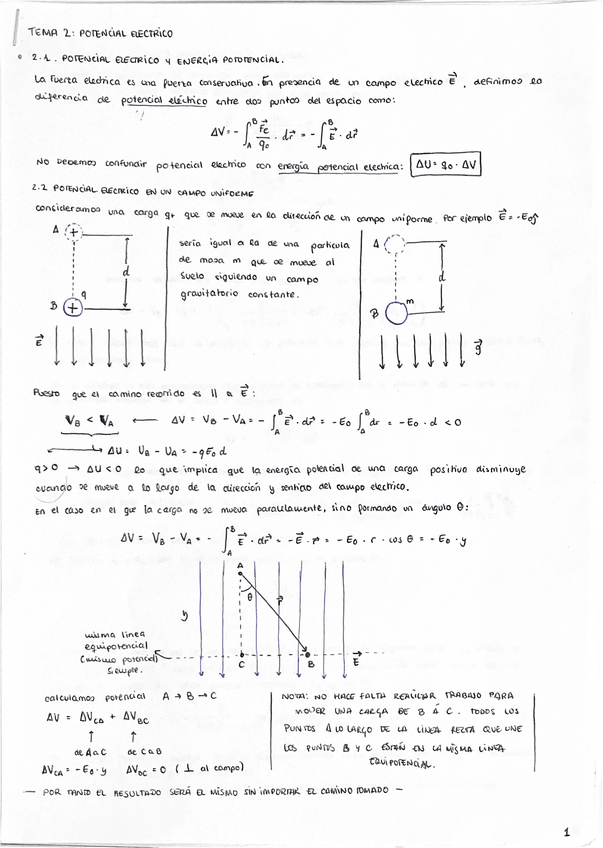 TEMA 2: POTENCIAL ELECTRICO
2.1. POTENCIAL ELECTRICO Y ENERGIA POTOTENCIAL.
La fuerza electrica es una fuerza conservativa. En presencia de un campo electrico E⃗, definimos la
diferencia de potencial eléctrico entre dos puntos del espacio como:
ΔV = - ∫_A^B F⃗e/q₀ · dr⃗ = - ∫_A^B E⃗ · dr⃗
NO DEBEMOS confundir potencial electrico con energía potencial electrica: ΔU = q₀ · ΔV
2.2 POTENCIAL ELECRICO EN UN CAMPO UNIFOEME
consideramos una carga q+ que se mueve en la dirección de un campo uniforme. Por ejemplo E⃗ = -E₀ĵ
A + d
B + q
E⃗
sería igual a la de una particula
de masa m que se mueve al
suelo siguiendo un campo
gravitatorio constante.
A d
B m
g⃗
Puesto que el camino recorrido es || a E⃗:
V_B < V_A ← ΔV = V_B - V_A = - ∫_A^B E⃗ · dr⃗ = -E₀ ∫_A^B dr = -E₀ · d < 0
→ ΔU = U_B - U_A = -qE₀d
q>0 → ΔU<0 lo que implica que la energía potencial de una carga positiva disminuye
cuando se mueve a lo largo de la dirección y sentido del campo electrico.
En el caso en el que la carga no se mueva paralelamente, sino formando un ángulo θ:
ΔV = V_B - V_A = - ∫_A^B E⃗ · dr⃗ = -E⃗ · r⃗ = -E₀ · r · cos θ = -E₀ · y
A
θ r⃗
y
misma linea
equipotencial
(mismo potencial)
siempre.
C B E⃗
calculamos potencial A → B → C
ΔV = ΔV_CA + ΔV_BC
↑ ↑
de A a C de C a B
ΔV_CA = -E₀ · y ΔV_BC = 0 (⊥ al campo)
NOTA: NO HACE FALTA REALIZAR TRABAJO PARA
MOVER UNA CARGA DE B A C. TODOS LOS
PUNTOS A LO LARGO DE LA LINEA RECTA QUE UNE
LOS PUNTOS B Y C ESTÁN EN LA MISMA LINEA
EQUIPOTENCIAL.
— POR TANTO EL RESULTADO SERÁ EL MISMO SIN IMPORTAR EL CAMINO TOMADO —
1